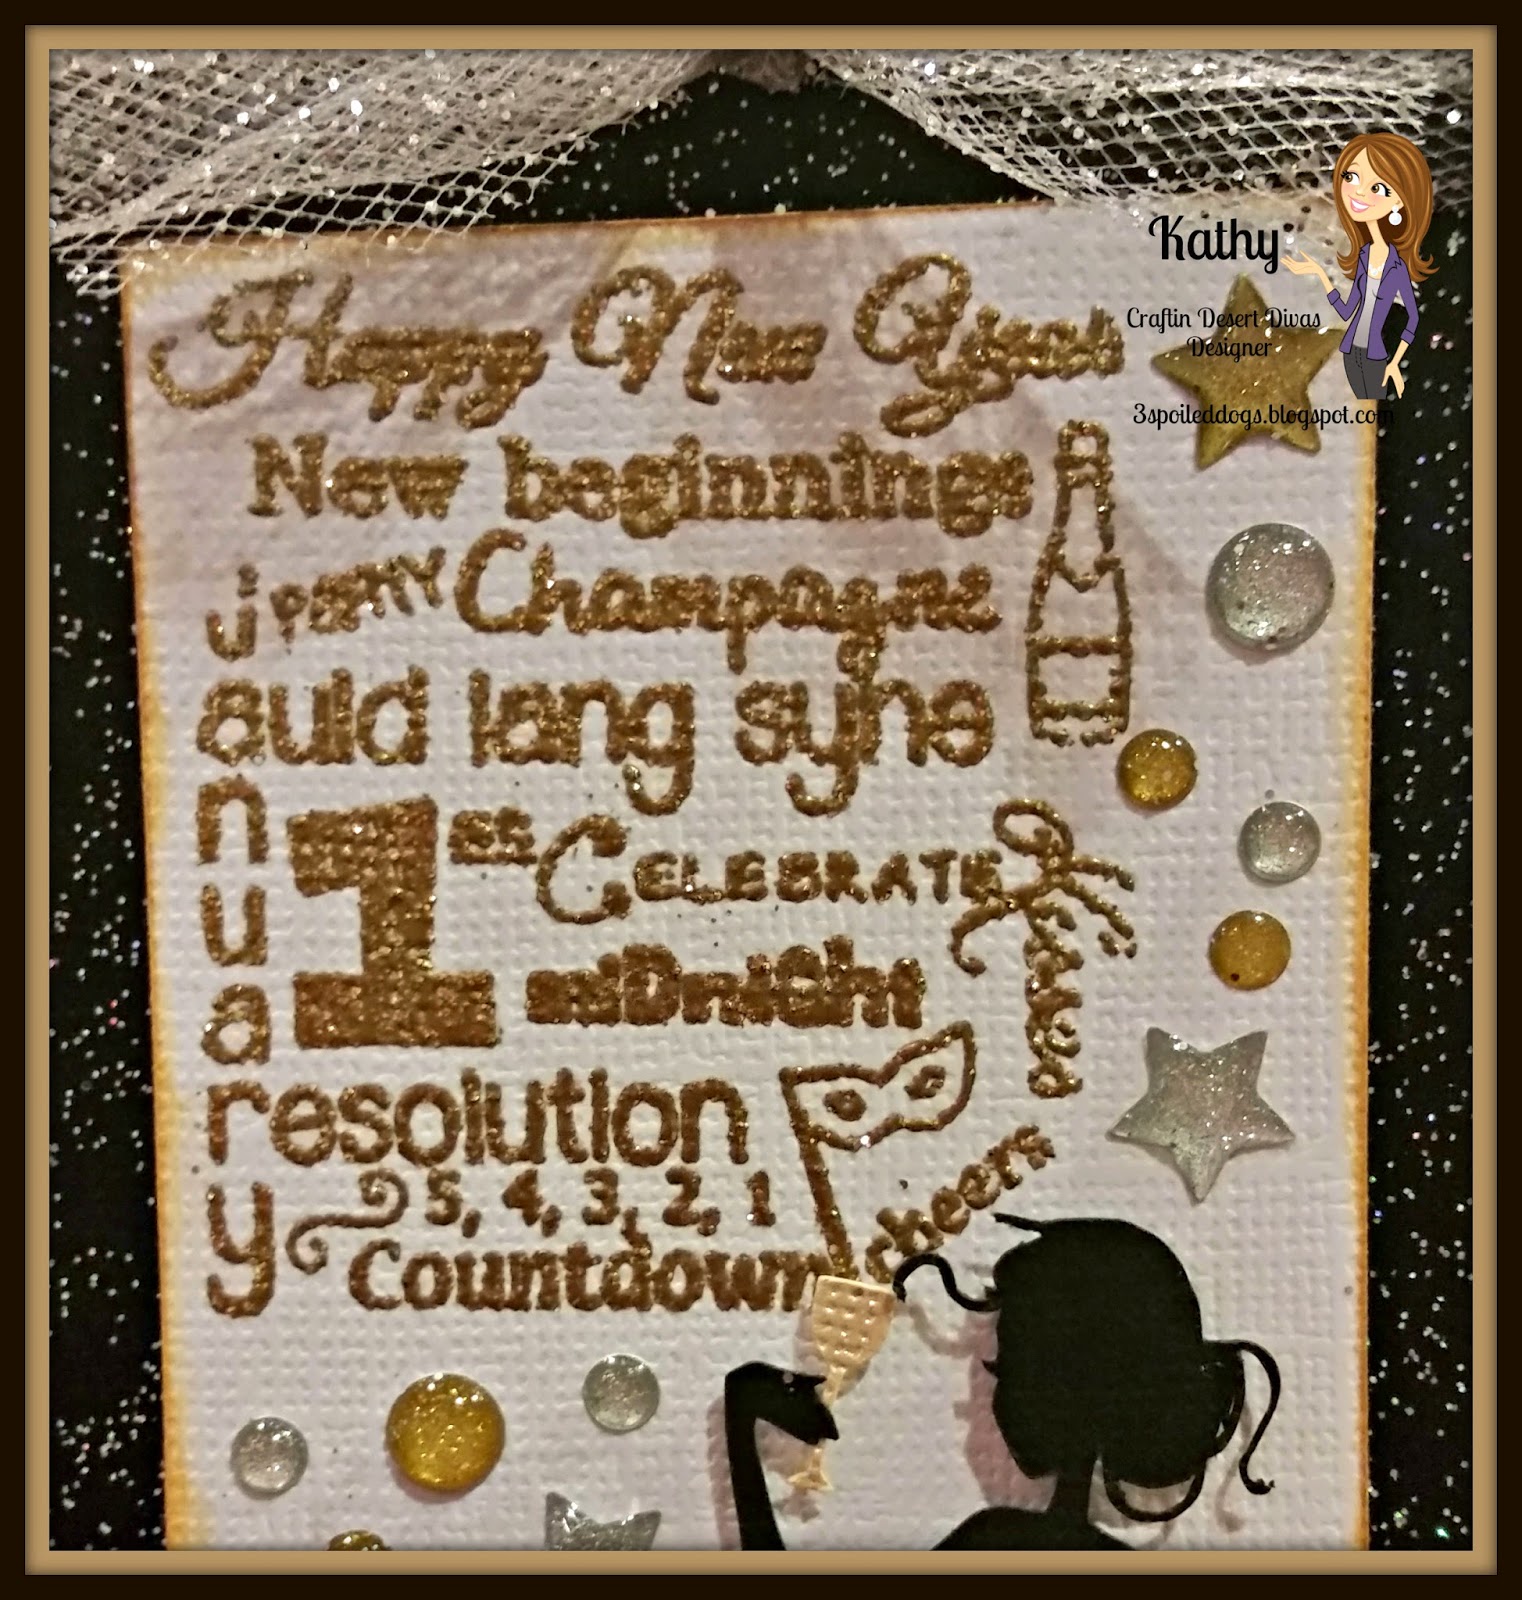 Happy New Year
New beginnings
j PARTY Champagne
auld lang syne
n
u
a
1st CELEBRATE
miDnight
resolution
y
5, 4, 3, 2, 1
Countdown
cheers
Kathy
Craftin Desert Divas
Designer
3spoileddogs.blogspot.com